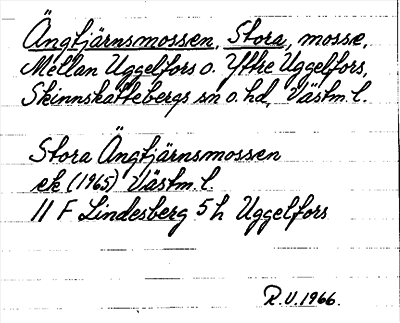 Ängtjärnsmossen, Stora, mosse,
Mellan Uggelfors o. Yttre Uggelfors,
Skinnskattebergs sn o. hd, Västm. l.
Stora Ängtjärnsmossen
ek (1965) Västm. l.
11 F Lindesberg 5 h Uggelfors
R.U. 1966.